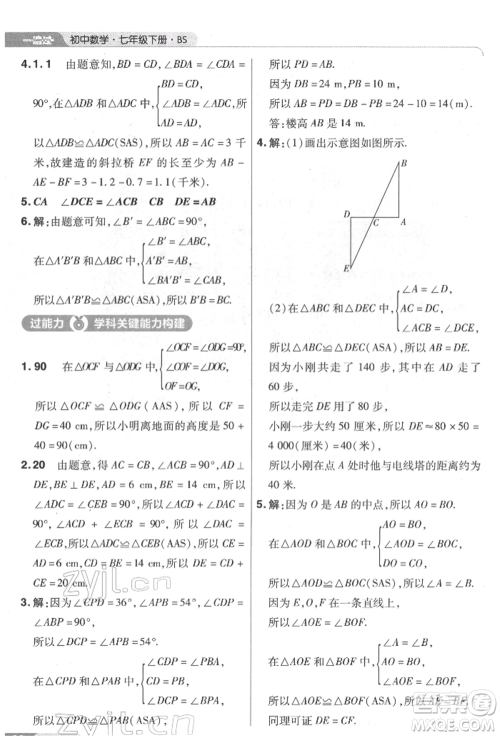 一遍过 初中数学·七年级下册·BS
4.1.1 由题意知,BD=CD,∠BDA=∠CDA=
90°,在△ADB和△ADC中,{BD=CD, ∠ADB=∠ADC, AD=AD,
所以△ADB≌△ADC(SAS),所以AB=AC=3千
米,故建造的斜拉桥EF的长至少有AB-
AE-BF=3-2=1.1(千米).
5.CA ∠DCE=∠ACB CB DE=AB
6.解:由题意可知,∠B'=∠ABC=90°,
在△A'B'B和△ABC中,{∠B'=∠ABC, A'B'=AB, ∠BA'B'=∠BAC,
所以△A'B'B≌△ABC(ASA),所以B'B=BC.
过能力 学科关键能力构建
1.90 在△OCF与△ODG中,{∠OCF=∠ODG=90°, ∠COF=∠DOG, OF=OG,
所以△OCF≌△ODG(AAS),所以CF=
DG=40 cm,所以小明离地面的高度是50+
40=90(cm).
2.20 由题意,得AC=CB,∠ACB=90°,AD⊥DE,
BE⊥DE,AD=6 cm,BE=14 cm,所以∠ADC=
∠CEB=90°,所以∠ACD+∠BCE=90°,∠ACD+
∠DAC=90°,所以∠BCE=∠DAC.在△ADC和
△CEB中,∠ADC=∠CEB,∠DAC=∠BCE,AC=
CB,所以△ADC≌△CEB(AAS),所以DC=BE=
14 cm,AD=CE=6 cm,所以DE=DC+CE=
20 cm.
3.解:因为∠CPD=36°,∠APB=54°,∠CDP=∠ABP=90°,
所以∠DCP=∠APB=54°.
在△CPD和△PAB中,{∠CDP=∠PBA, DC=BP, ∠DCP=∠BPA,
所以△CPD≌△PAB(ASA),
所以DP=BA.
因为DB=24 m,PB=10 m,
所以AB=PD=DB-PB=24-10=14(m).
答:楼高AB是14 m.
4.解:(1)画出示意图如图所示.
B
D C A
E
(2)在△ABC和△DEC中,{∠BAC=∠EDC, AC=DC, ∠ACB=∠DCE,
所以△ABC≌△DEC(ASA),所以AB=DE.
因为小刚共走了140步,其中AD走了
60步,
所以走完DE用了80步.
小刚一步大约50厘米,所以DE≈80×50=
4 000(厘米)=40(米).
所以小刚在点A处时他与电线塔的距离约为
40米.
5.解:因为O是AB的中点,所以AO=BO.
在△AOD和△BOC中,{AO=BO, ∠AOD=∠BOC, DO=CO,
所以△AOD≌△BOC(SAS),所以∠A=∠B.
因为E,O,F在一条直线上,
所以∠AOE=∠BOF.
在△AOE和△BOF中,{∠A=∠B, AO=BO, ∠AOE=∠BOF,
所以△AOE≌△BOF(ASA),所以AE=BF.
同理可证DE=CF.
zyjl.cn
zyjl.cn
答案圈